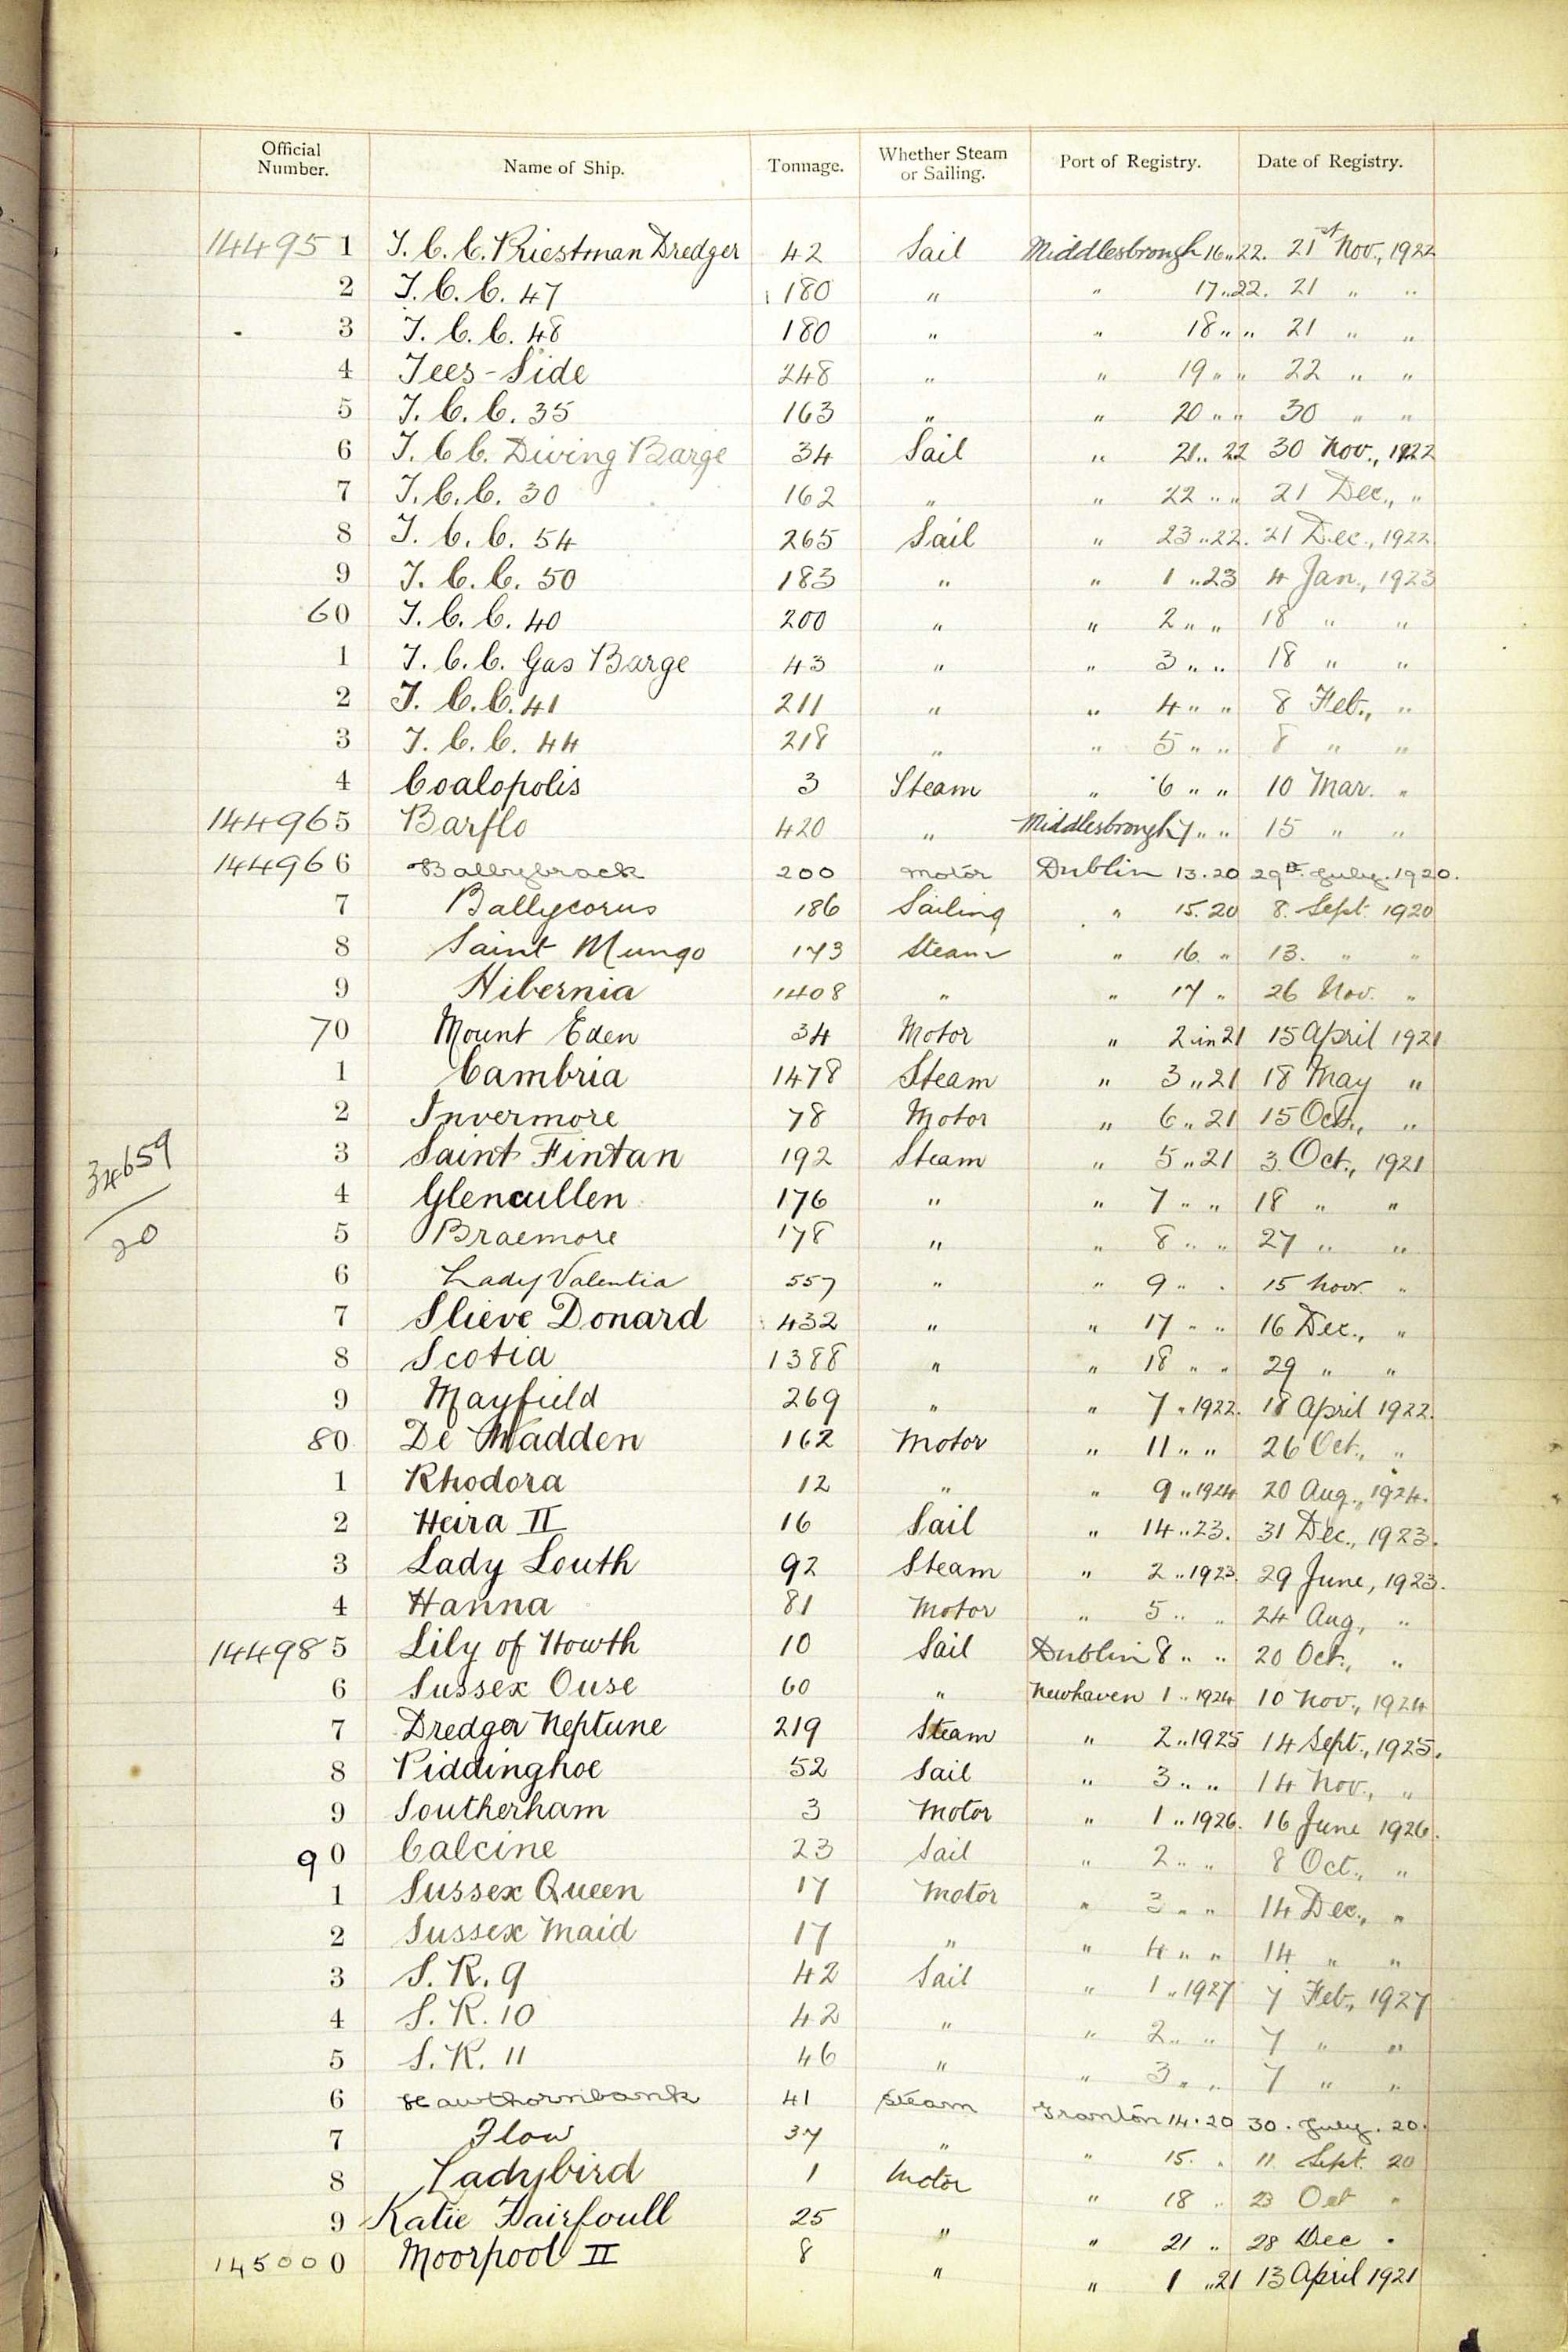 Official Number. Name of Ship. Tonnage. Whether Steam or Sailing. Port of Registry. Date of Registry.
144951 T.C.C. Priestman Dredger 42 Sail Middlesbrough 16..22. 21st Nov., 1922
2 T.C.C. 47 180 " " 17..22. 21 " "
3 T.C.C. 48 180 " " 18 " " 21 " "
4 Tees-Side 248 " " 19 " " 22 " "
5 T.C.C. 35 163 " " 20 " " 30 " "
6 T.C.C. Diving Barge 34 Sail " 21..22 30 Nov., 1922
7 T.C.C. 30 162 " " 22 " " 21 Dec., "
8 T.C.C. 54 265 Sail " 23..22. 21 Dec., 1922
9 T.C.C. 50 183 " " 1..23 4 Jan., 1923
60 T.C.C. 40 200 " " 2 " " 18 " "
1 T.C.C. Gas Barge 43 " " 3 " " 18 " "
2 T.C.C. 41 211 " " 4 " " 8 Feb., "
3 T.C.C. 44 218 " " 5 " " 8 " "
4 Coalopolis 3 Steam " 6 " " 10 Mar. "
144965 Barflo 420 " Middlesbrough 7 " " 15 " "
144966 Ballybrack 200 Motor Dublin 13.20 29th July. 1920.
7 Ballycorus 186 Sailing " 15.20 8. Sept. 1920
8 Saint Mungo 173 Steam " 16. " 13. " "
9 Hibernia 1408 " " 17 " 26 Nov. "
70 Mount Eden 34 Motor " 2 in 21 15 April 1921
1 Cambria 1478 Steam " 3 " 21 18 May "
2 Invermore 78 Motor " 6 " 21 15 Oct., "
3 Saint Fintan 192 Steam " 5 " 21 3 Oct., 1921
34659
4 Glencullen 176 " " 7 " " 18 " "
20
5 Braemore 178 " " 8 " " 27 " "
6 Lady Valentia 557 " " 9 " " 15 Novr. "
7 Slieve Donard 432 " " 17 " " 16 Dec., "
8 Scotia 1388 " " 18 " " 29 " "
9 Mayfield 269 " " 7 " 1922. 18 April 1922.
80 De Wadden 162 Motor " 11 " " 26 Oct., "
1 Rhodora 12 " " 9 " 1924 20 Aug., 1924.
2 Heira II 16 Sail " 14..23. 31 Dec., 1923.
3 Lady Louth 92 Steam " 2 " 1923. 29 June, 1923.
4 Hanna 81 Motor " 5 " " 24 Aug, "
144985 Lily of Howth 10 Sail Dublin 8 " " 20 Oct., "
6 Sussex Ouse 60 " Newhaven 1 " 1924 10 Nov., 1924
7 Dredger Neptune 219 Steam " 2 " 1925 14 Sept., 1925.
8 Piddinghoe 52 Sail " 3 " " 14 Nov., "
9 Southerham 3 Motor " 1 " 1926. 16 June 1926.
90 Calcine 23 Sail " 2 " " 8 Oct., "
1 Sussex Queen 17 Motor " 3 " " 14 Dec., "
2 Sussex Maid 17 " " 4 " " 14 " "
3 S.R. 9 42 Sail " 1 " 1927 7 Feb., 1927
4 S.R. 10 42 " " 2 " " 7 " "
5 S.R. 11 46 " " 3 " " 7 " "
6 Hawthornbank 41 Steam Granton 14.20 30. July. 20.
7 Flow 37 " " 15. " 11 Sept. 20
8 Ladybird 1 Motor " 18 " 23 Oct "
9 Katie Fairfoull 25 " " 21 " 28 Dec "
145000 0 Moorpool II 8 " " 1 " 21 13 April 1921